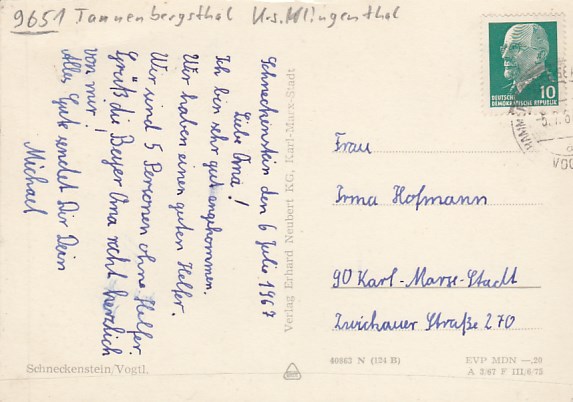 9651 Tannenbergsthal Krs. Klingenthal
Schneckenstein den 6 Julie 1967
Liebe Oma!
Ich bin sehr gut angekommen.
Wir haben einen guten Helfer.
Wir sind 5 Personen ohne Helfer.
Grüß die Beyer Oma recht herzlich
von mir.
Alles Gute sendet Dir Dein
Michael
Schneckenstein/Vogtl.
Verlag Erhard Neubert KG, Karl-Marx-Stadt
DEUTSCHE
DEMOKRATISCHE REPUBLIK
10
Frau
Irma Hofmann
90 Karl-Marx-Stadt
Zwickauer Straße 270
40862 N (124 B)
EVP MDN —,20
A 2/67 F III/6/72